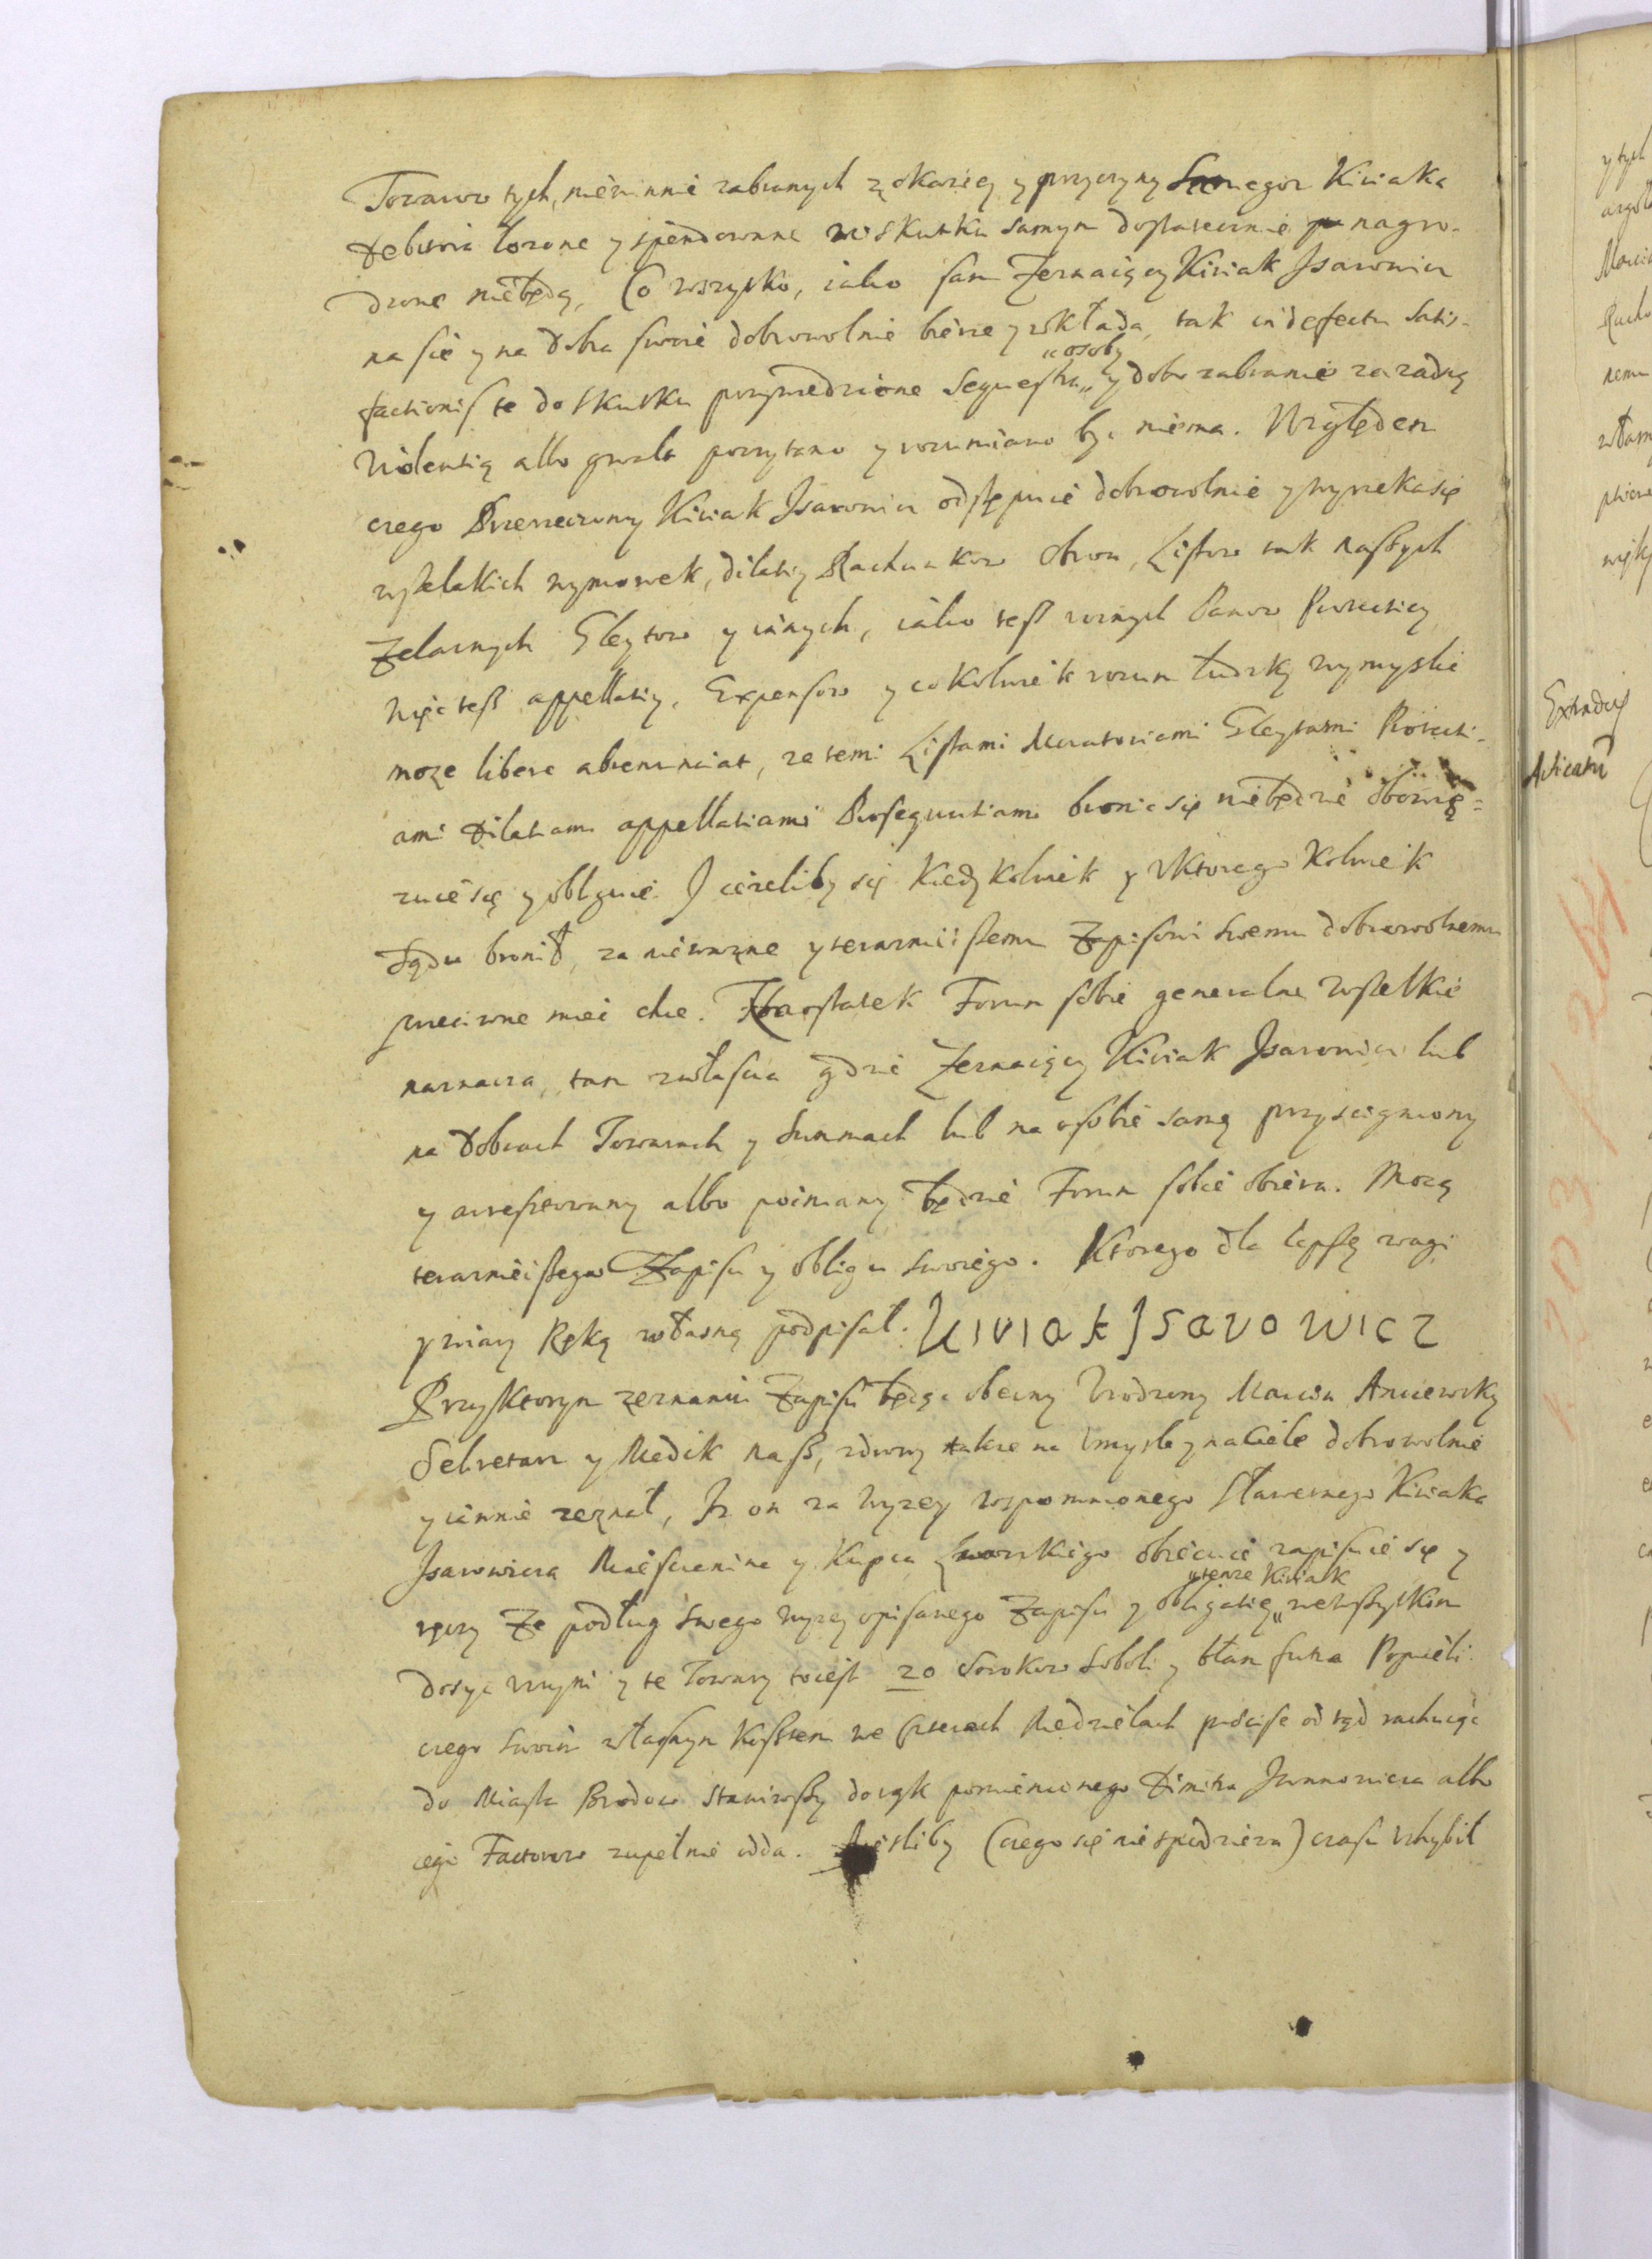 Towarow tych, niewinnie zabranych z okaziey y przyczyny Kiriaka
debitoria łozone y spendowane w skutku samym dostatecznie nagro-
dzone niebędą, Co wszytko, iako sam Zeznaiący Kiriak Isarowicz
na sie y na dobra swoie dobrowolnie bierze y wkłada, tak in defectu satis-
factionis te do skutku przywiedzione Sequestra „osoby„ y dobr zabranie za zadną
Violentią albo gwałt poczytano y rozumiano być niema. Względem
czego Przerzeczony Kiriak Isarowicz odstępuie dobrowolnie y wyrzeka się
wszelakich wymowek, dilatiy Rachunkow obron, Listow tak naszych
Zelaznych Gleytow y innych, iako tesz roznych Panow Protectiey
więc tesz appellatiy, Expensow y cokolwiek rozum ludzky wymyslić
moze libere abrenunciat, ze temi Listami Moratoriami Gleytami Protecti-
ami dilatiami appellatiami Prosequutiami bronic się niebędzie obowię-
zuie się y obliguie. I iezeliby się Kiedykolwiek y v Ktorego Kolwiek
sądu bronił, za niewazne y teraznieiszemu Zapisowi swemu dobrowolnemu
przeciwne mieć chce. Naostatek Forum sobie generalne wszelkie
naznacza, tam zwłaszcza gdzie Zeznaiący Kiriak Isarowicz lub
na dobrach Towarach y Summach lub na osobie samę przyscigniony
y aresztowany albo poimany będzie Forum sobie obiera. Mocą
teraznieiszego Zapisu y obligu swoiego. Ktorego dla lepszę wagi
y wiary Ręką własną podpisał. Kiriak Isarowicz
Przy Ktorym zeznaniu Zapisu będąc obecny Vrodzony Marcin Anczewsky
Sekretarz y Medik nasz, zdrowy takze na Vmysle y na Ciele dobrowolnie
y iawnie zeznał, Iz on za wyzey wspomnionego Sławetnego Kiriaka
Isarowicza Miesczanina y Kupca Lwowskiego obiecuie zapisuie się y
ręczy Ze podług swego wyzey opisanego Zapisu y obligatię „tenze Kiriak„ wewszytkim
dosyc vczyni y te Towary toiest 20 Sorokow Soboli y błam futra Popieli-
czego swoim własnym Kosztem we czterech Niedzielach posciste od tąd rachuiąc
do Miasta Brodow stawiwszy do rąk pomienionego Dimitra Iwanowicza albo
iego Factorow zupełnie odda. Iesliby (czego się nie spodziewa) czasu vchybił
Extradit